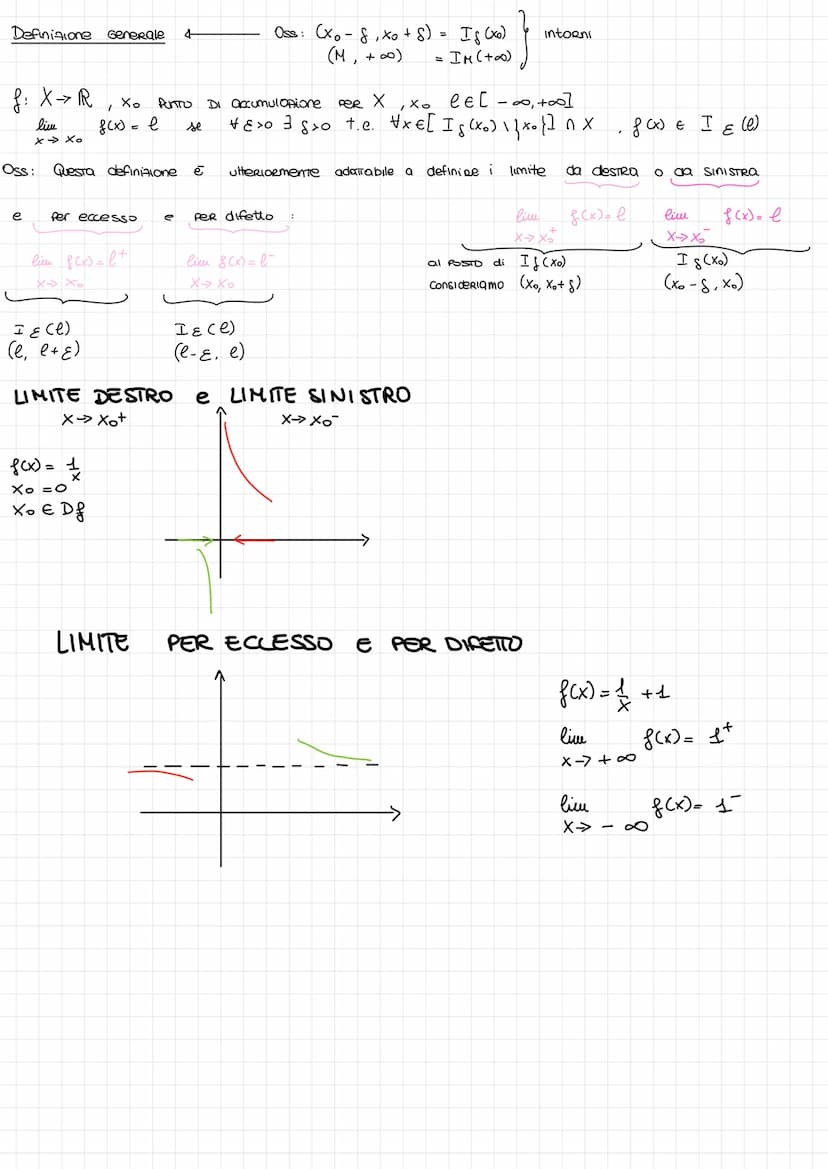 Definizione Generale ← Oss: (x₀ - δ, x₀ + δ) = Iδ(x₀) } intorni
(M, +∞) = I_M(+∞)
f: X → ℝ, x₀ PUNTO DI accumulazione PER X, x₀ ℓ ∈ [-∞, +∞]
lim x→x₀ f(x) = ℓ se ∀ε>0 ∃ δ>0 t.c. ∀x∈[Iδ(x₀) \ {x₀}] ∩ X, f(x) ∈ I ε(ℓ)
Oss: Questa definizione è ulteriormente adattabile a definire i limite da destra o da sinistra
e per eccesso e per difetto :
lim x→x₀⁺ f(x) = ℓ lim x→x₀⁻ f(x) = ℓ
lim x→x₀ f(x) = ℓ⁺ lim x→x₀ f(x) = ℓ⁻
al posto di Iδ(x₀) Iδ(x₀)
consideriamo (x₀, x₀+δ) (x₀ - δ, x₀)
Iε(ℓ) Iε(ℓ)
(ℓ, ℓ+ε) (ℓ-ε, ℓ)
LIMITE DESTRO e LIMITE SINISTRO
x→x₀⁺ x→x₀⁻
f(x) = 1/x
x₀ = 0
x₀ ∈ Df
LIMITE PER ECCLESSO E PER DIFETTO
f(x) = 1/x + 1
lim x→+∞ f(x) = 1⁺
lim x→-∞ f(x) = 1⁻